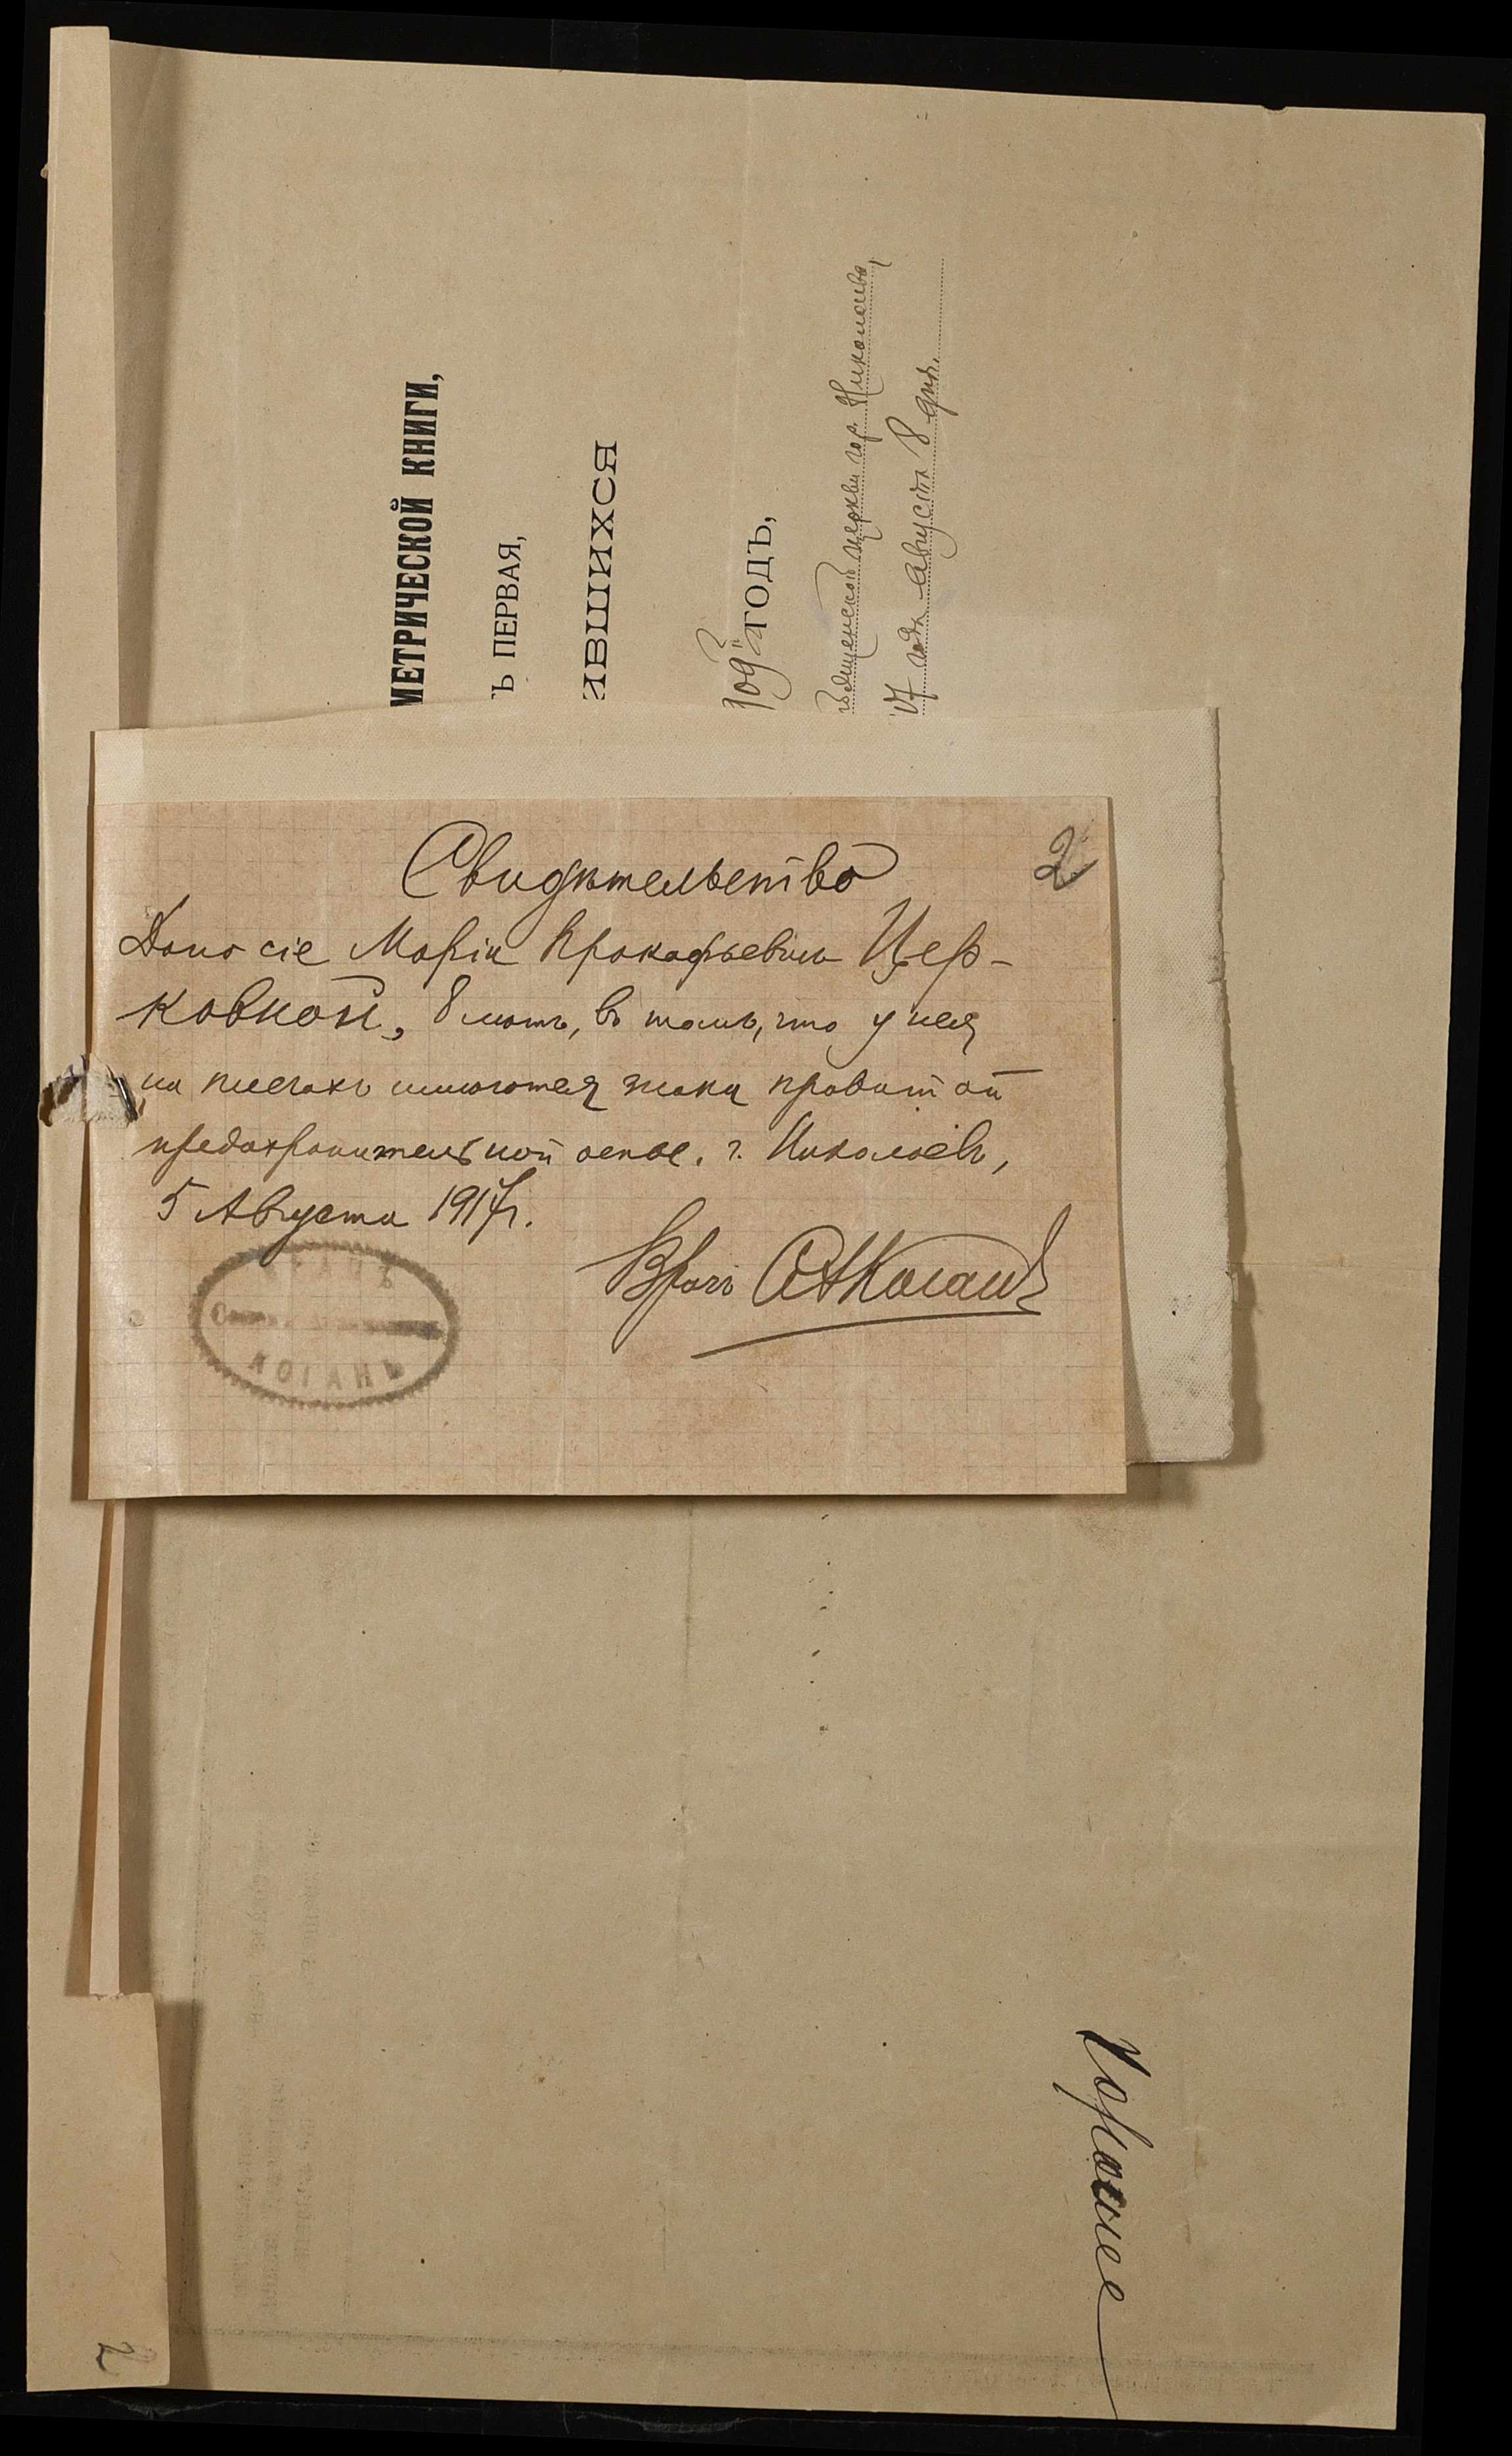 МЕТРИЧЕСКОЙ КНИГИ,
Ъ ПЕРВАЯ,
ВШИХСЯ
1909 ГОДЪ,
церкви гор. Николаева,
17 года Августа 8 дня.
2
Свидѣтельство
Дано сіе Маріи Прокофьевнѣ Цер-
ковной, 8 лѣтъ, въ томъ, что у нея
на плечахъ имѣются знаки привитой
предохранительной оспы. г. Николаевъ,
5 Августа 1917 г.
Врачъ САКоганъ
ВРАЧЪ
КОГАНЪ
2